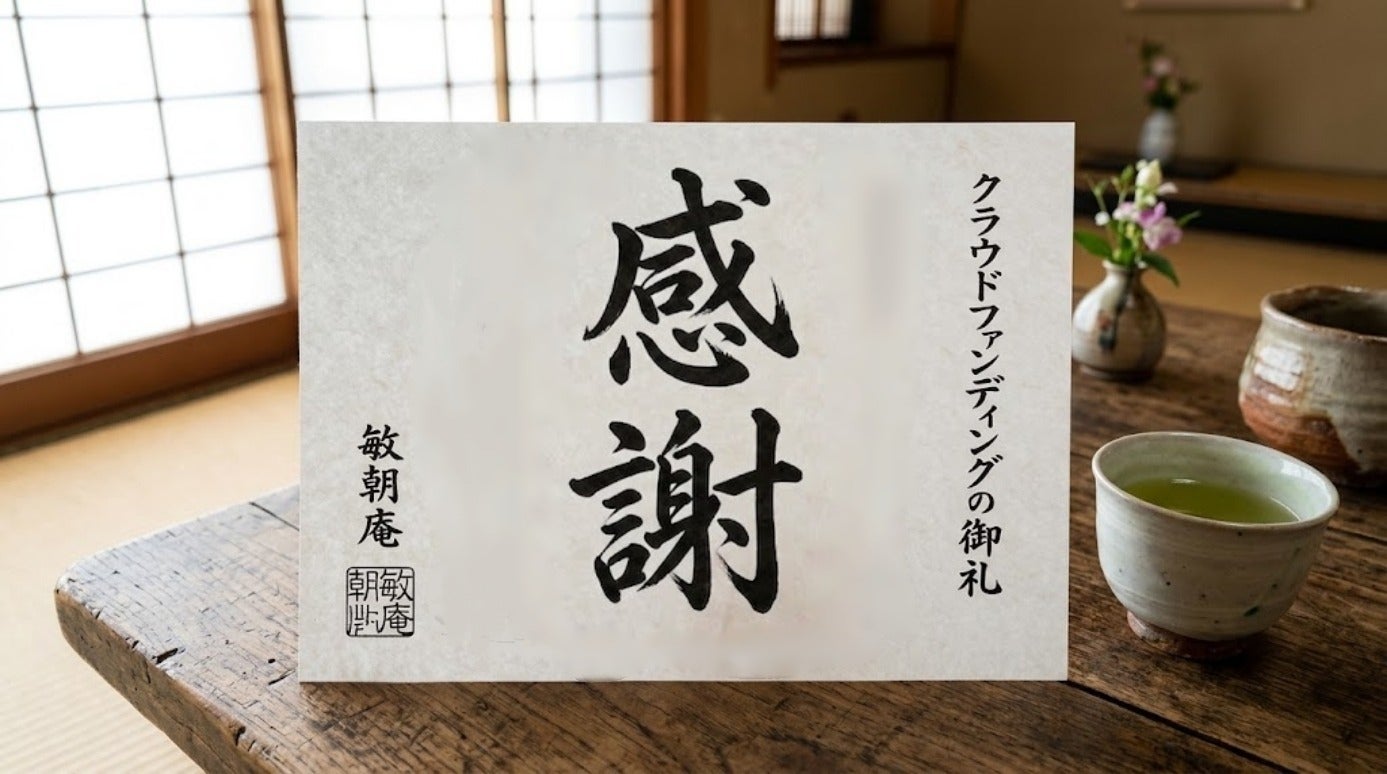 クラウドファンディングの御礼
感謝
敏朝庵